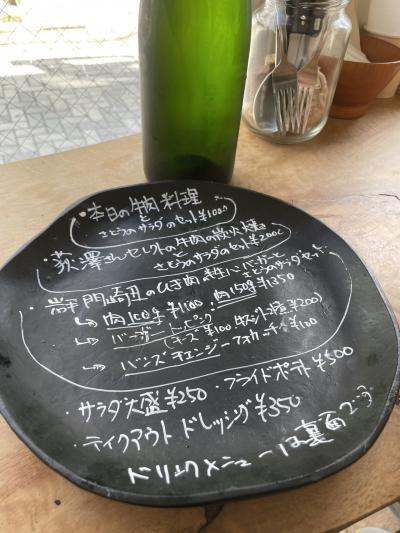 ・本日の牛肉料理
と
さとうのサラダのセット¥1000
・荻澤さんセレクトの牛肉の炭火焼き
と
さとうのサラダのセット¥2000
・岩手門崎丑のひき肉の粗挽きハンバーガーと
さとうのサラダセット
↳肉100g ¥1100 肉150g ¥1350
↳バーガートッピング
チーズ¥100 ¥200
↳バンズチェンジーフォカッチャ¥100
・サラダ大盛¥250 ・フライドポテト¥500
・テイクアウト ドレッシング¥350
ドリンクメニューは裏面